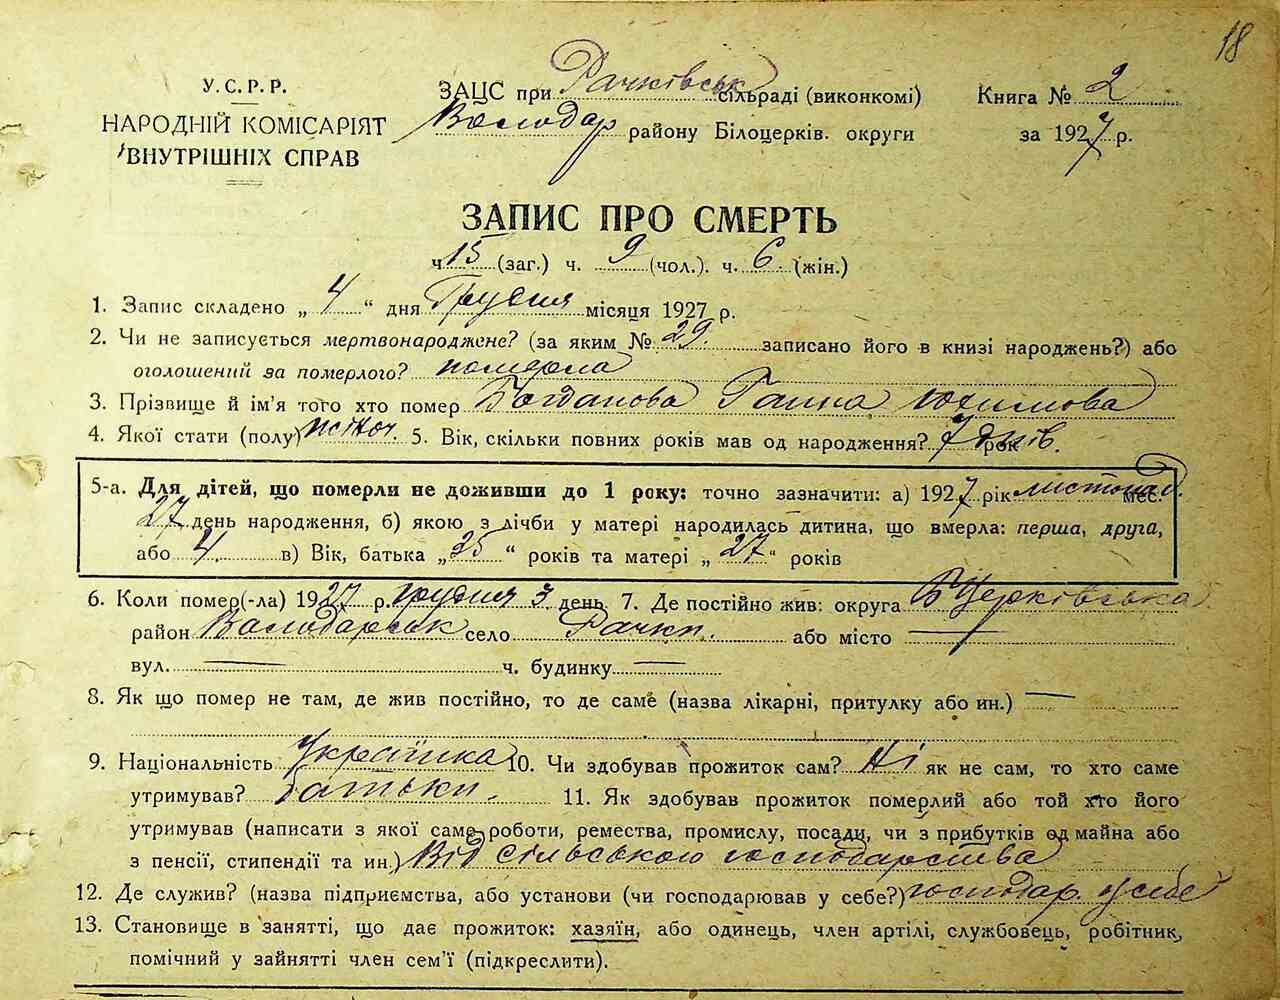 18
У.С.Р.Р.
НАРОДНІЙ КОМІСАРІЯТ
ВНУТРІШНІХ СПРАВ
ЗАЦС при Рачківськ сільраді (виконкомі)
Володар району Білоцерків. округи
Книга № 2
за 1927 р.
ЗАПИС ПРО СМЕРТЬ
ч. 15 (заг.) ч. 9 (чол.). ч. 6. (жін.)
1. Запис складено „ 4 “ дня Грудня місяця 1927 р.
2. Чи не записується мертвонароджене? (за яким № 29. записано його в книзі народжень?) або
оголошений за померлого? померла
3. Прізвище й ім'я того хто помер Богданова Ганна Юхимова
4. Якої стати (полу) жіноч. 5. Вік, скільки повних років мав од народження? 7 днів. рок
5-а. Для дітей, що померли не доживши до 1 року: точно зазначити: а) 1927 рік листопад. мес.
27 день народження, б) якою з лічби у матері народилась дитина, що вмерла: перша, друга,
або 4. в) Вік, батька „35“ років та матері „27“ років
6. Коли помер(-ла) 1927 р. грудня 3 день 7. Де постійно жив: округа Б Церківська
район Володарськ село Рачки. або місто —
вул. — ч. будинку —
8. Як що помер не там, де жив постійно, то де саме (назва лікарні, притулку або ин.) —
9. Національність Українка 10. Чи здобував прожиток сам? Ні як не сам, то хто саме
утримував? батьки. 11. Як здобував прожиток померлий або той хто його
утримував (написати з якої саме роботи, ремества, промислу, посади, чи з прибутків од майна або
з пенсії, стипендії та ин.) Від сільського господарства
12. Де служив? (назва підприємства, або установи (чи господарював у себе?) господар. у себе
13. Становище в занятті, що дає прожиток: хазяїн, або одинець, член артілі, службовець, робітник,
помічний у зайнятті член сем'ї (підкреслити).